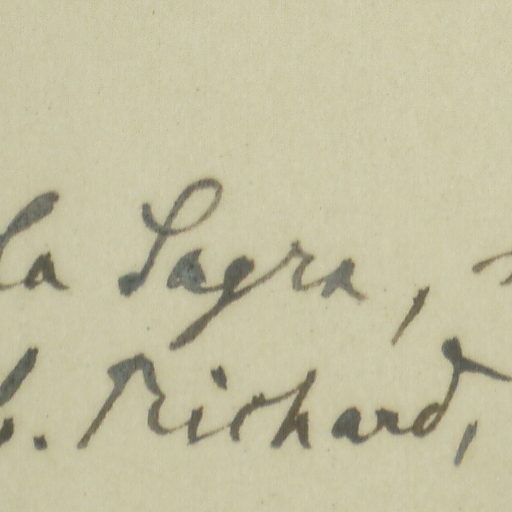 la Sagra,
. Richard,